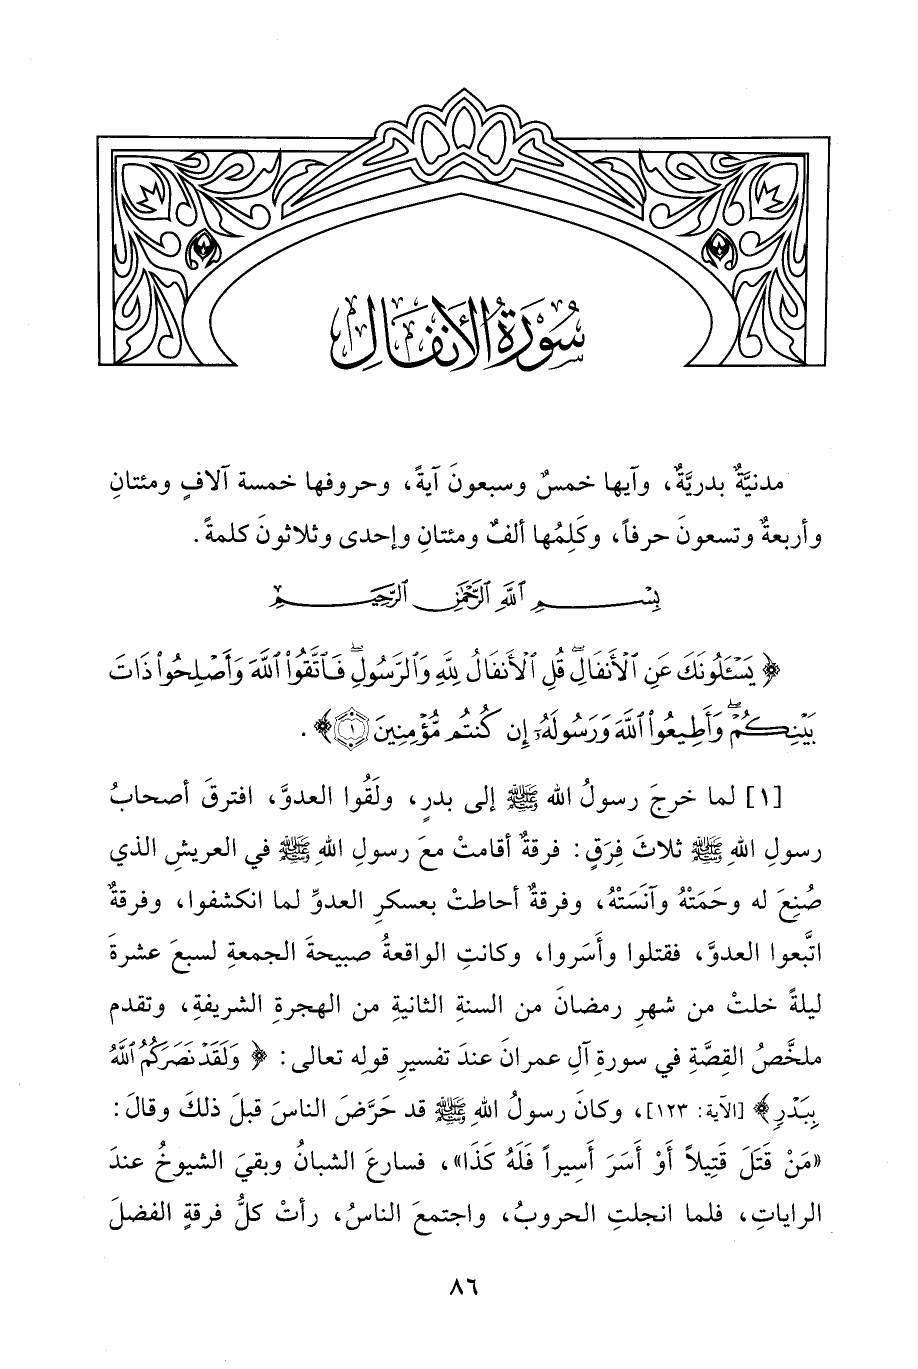 سُوْرَةُ الْأَنْفَالِ
مدنيَّةٌ بدريَّةٌ، وآيها خمسٌ وسبعونَ آيةً، وحروفها خمسة آلافٍ ومئتانِ
وأربعةٌ وتسعونَ حرفاً، وكَلِمُها ألفٌ ومئتانِ وإحدى وثلاثونَ كلمةً.
بِسْمِ ٱللَّهِ ٱلرَّحْمَٰنِ ٱلرَّحِيمِ
﴿يَسْـَٔلُونَكَ عَنِ ٱلْأَنفَالِۖ قُلِ ٱلْأَنفَالُ لِلَّهِ وَٱلرَّسُولِۖ فَٱتَّقُوا۟ ٱللَّهَ وَأَصْلِحُوا۟ ذَاتَ
بَيْنِكُمْۖ وَأَطِيعُوا۟ ٱللَّهَ وَرَسُولَهُۥٓ إِن كُنتُم مُّؤْمِنِينَ ١﴾.
[١] لما خرجَ رسولُ الله ﷺ إلى بدرٍ، ولَقُوا العدوَّ، افترقَ أصحابُ
رسولِ اللهِ ﷺ ثلاثَ فِرَقٍ: فرقةٌ أقامتْ معَ رسولِ اللهِ ﷺ في العريشِ الذي
صُنِعَ له وحَمَتْهُ وآنَسَتْهُ، وفرقةٌ أحاطتْ بعسكرِ العدوِّ لما انكشفوا، وفرقةٌ
اتَّبعوا العدوَّ، فقتلوا وأَسَروا، وكانتِ الواقعةُ صبيحةَ الجمعةِ لسبعَ عشرةَ
ليلةً خلتْ من شهرِ رمضانَ من السنةِ الثانيةِ من الهجرةِ الشريفةِ، وتقدم
ملخَّصُ القِصَّةِ في سورةِ آلِ عمرانَ عندَ تفسيرِ قوله تعالى: ﴿وَلَقَدْ نَصَرَكُمُ ٱللَّهُ
بِبَدْرٍ﴾ [الآية: ١٢٣]، وكانَ رسولُ اللهِ ﷺ قد حَرَّضَ الناسَ قبلَ ذلكَ وقالَ:
«مَنْ قَتَلَ قَتِيلاً أَوْ أَسَرَ أَسِيراً فَلَهُ كَذَا»، فسارعَ الشبانُ وبقيَ الشيوخُ عندَ
الراياتِ، فلما انجلتِ الحروبُ، واجتمعَ الناسُ، رأتْ كلُّ فرقةٍ الفضلَ
٨٦